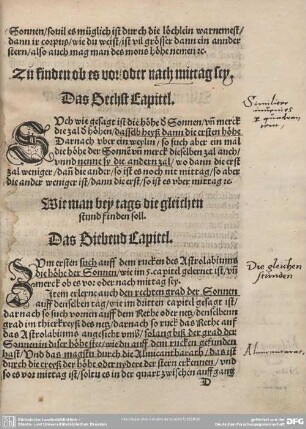 Sonnen/souil es müglich ist durch die löchlein warnemest/
dann ir corpus/wie du weist/ist vil grösser dann ein annder
stern/also auch mag man des mons höhe nemen ꝛc.
Zů finden ob es vor oder nach mittag sey.
Das Sechst Capitel.
SUch wie gesagt ist die höhe d Sonnen/vñ merck
die zal d höhen/dasselb heyß dann die ersten höhe
Darnach vber ein weylin/so such aber ein mal
die höhe der Sonnē vñ merck dieselben zal auch/
vnnd nenne sy die andern zal/wo dann die erst
zal weniger/dañ die ander/so ist es noch nit mittag/so aber
die ander weniger ist/dann die erst/so ist es vber mittag ꝛc.
Wie man bey tags die gleichen
stund finden soll.
Das Sibend Capitel.
ZUm ersten such auff dem rucken des Astrolabiums
die höhe der Sonnen/wie im 5. capitel gelernet ist/vñ
merck ob es vor oder nach mittag sey.
Item erlerne auch den rechten grad der Sonnen
auff denselben tag/wie im dritten capitel gesagt ist/
darnach so such vornen auff dem Rethe oder netz/denselben
grad im thierkreyß des netz/darnach so ruck das Rethe auff
das Astrolabiums angesicht vmb/solang biß der grad der
Sonnen diser höhe sitze/wie du auff dem rucken gefunden
hast/Vnd das magstu durch die Almicantharath/das ist
durch die kreyß der höhe oder nydere der stern erkennen/vnd
so es vor mittag ist/soltu es in der quart zwischen auffgang
D
Die gleichen
stunden